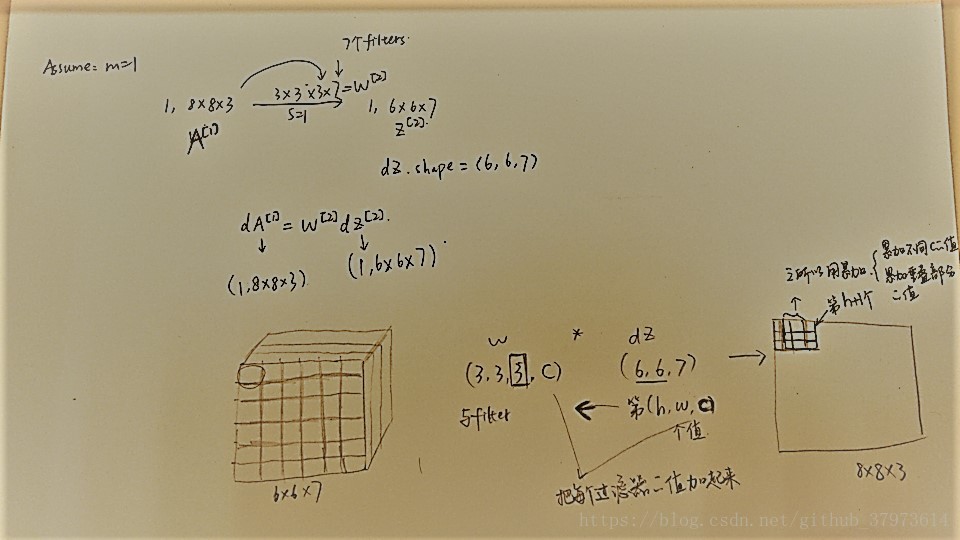 7个filters.
Assume: m=1
3×3×3×7=W[2]
1, 8×8×3
S=1
1, 6×6×7
A[1]
Z[2].
dZ.shape=(6,6,7)
dA[1]=W[2]dZ[2].
(1,8×8×3)
(1,6×6×7)
之所以用累加
累加不同C二值
累加重叠部分
二值
第h+1个
W * dZ
(3,3,3,C)
(6,6,7)
与filter
第(h,w,c)
个值
把每个过滤器二值加起来
6×6×7
8×8×3
https://blog.csdn.net/github_37973614